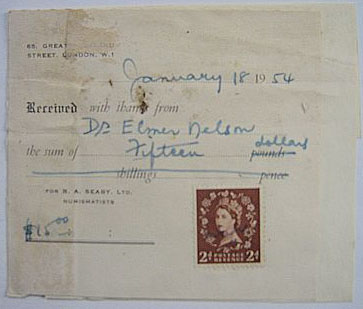 65, GREAT
STREET, LONDON, W.1
January 18 1954
Received with thanks from
Dr Elmer Nelson
the sum of Fifteen pounds dollars
shillings pence
FOR B. A. SEABY, LTD.
NUMISMATISTS
$15.00
2D POSTAGE REVENUE 2D